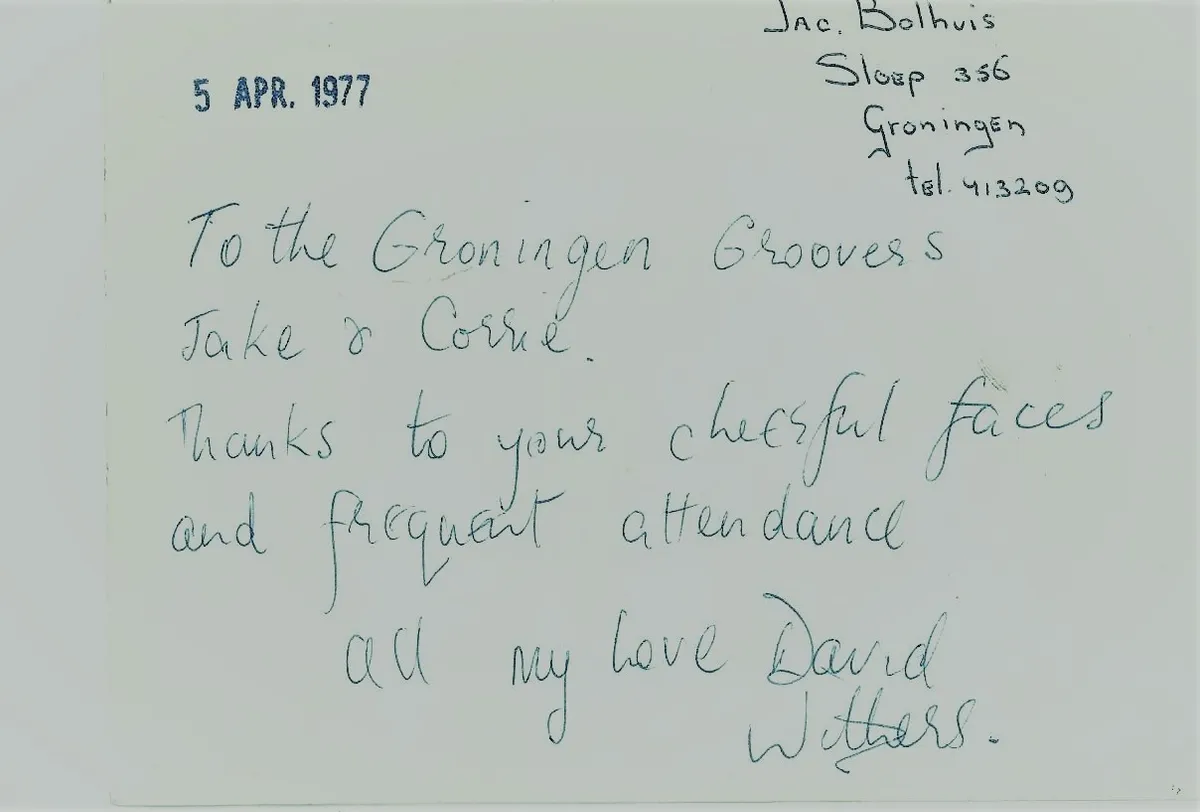 Jac. Bolhuis
Sloep 356
Groningen
tel. 413209
5 APR. 1977
To the Groningen Groovers
Jake & Corrie.
Thanks to your cheerful faces
and frequent attendance
all my love David
Withers.